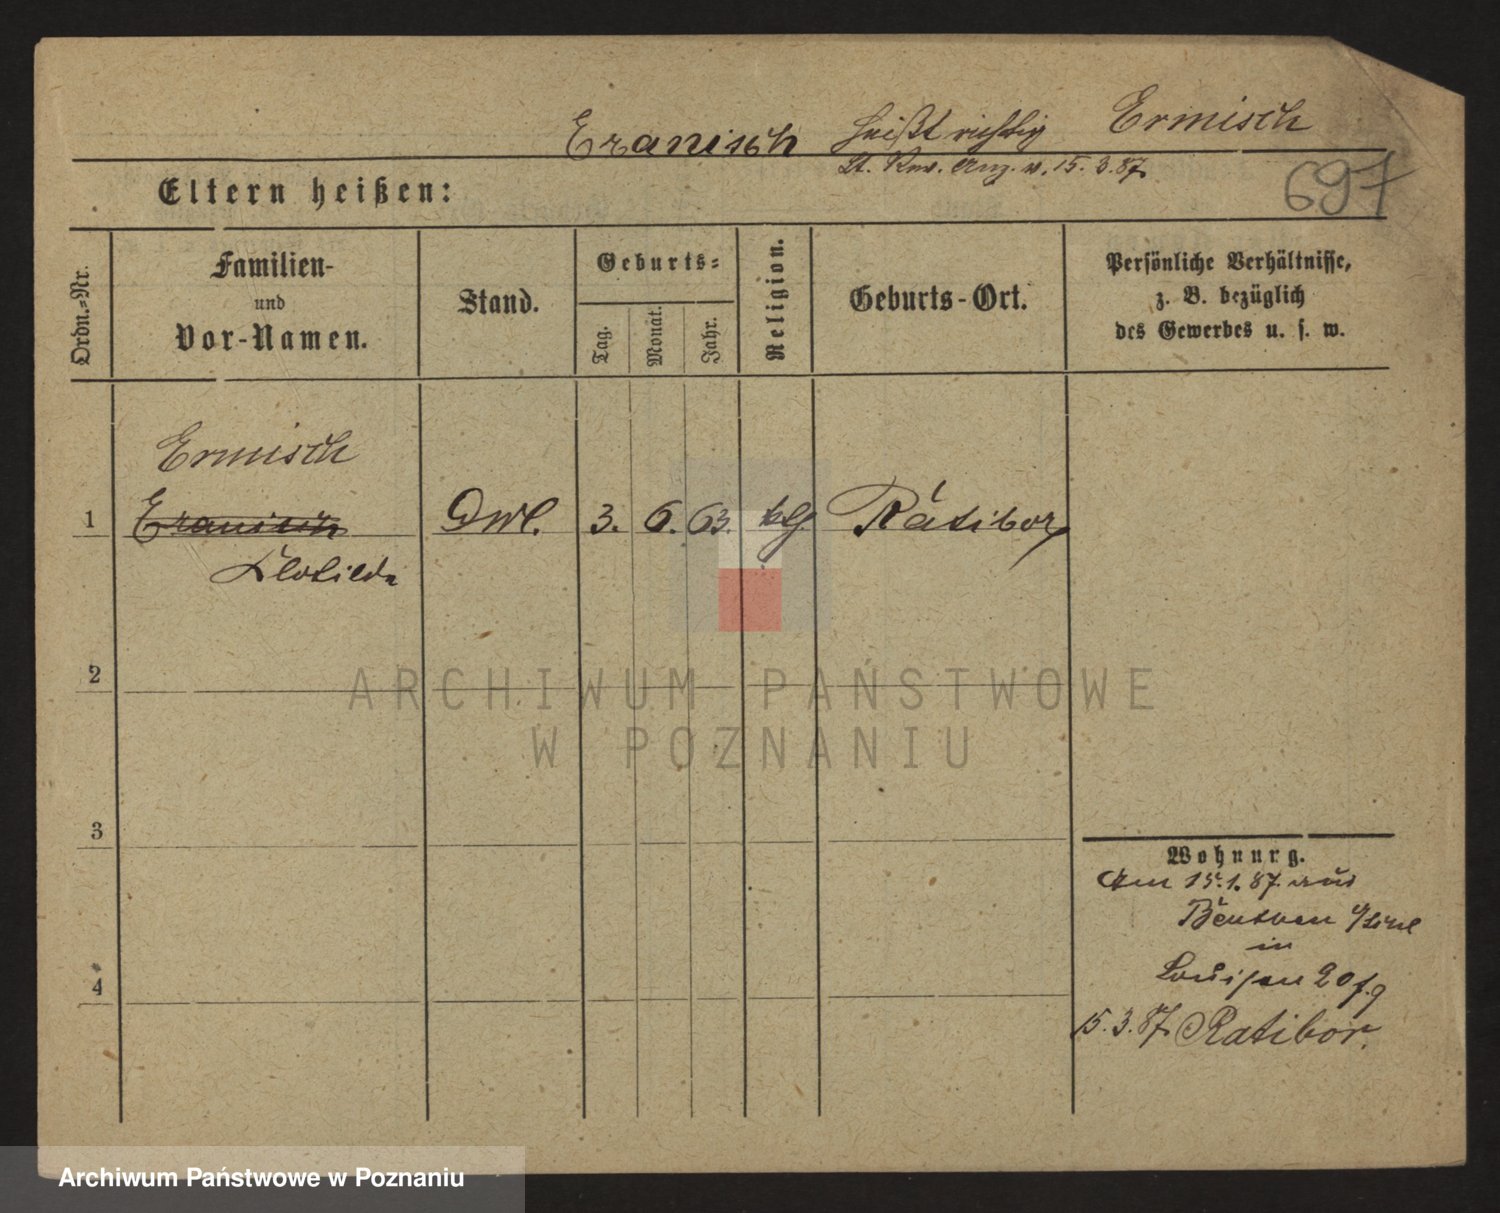 Eranisch heißt richtig Ermisch
Lt. Anz. v. 15.3.87.
697
Eltern heißen:
Ordn.-Nr.
Familien-
und
Vor-Namen.
Stand.
Geburts-
Tag.
Monat.
Jahr.
Religion.
Geburts-Ort.
Persönliche Verhältnisse,
z. B. bezüglich
des Gewerbes u. s. w.
Ermisch
1 Eranisch 3. 6. 63. Ratibor
Klotilde
2
3
4
Wohnung.
Am 15.1.87. aus
Beuthen
in
Louisen 20
15.3.87. Ratibor.
ARCHIWUM PAŃSTWOWE
W POZNANIU
Archiwum Państwowe w Poznaniu